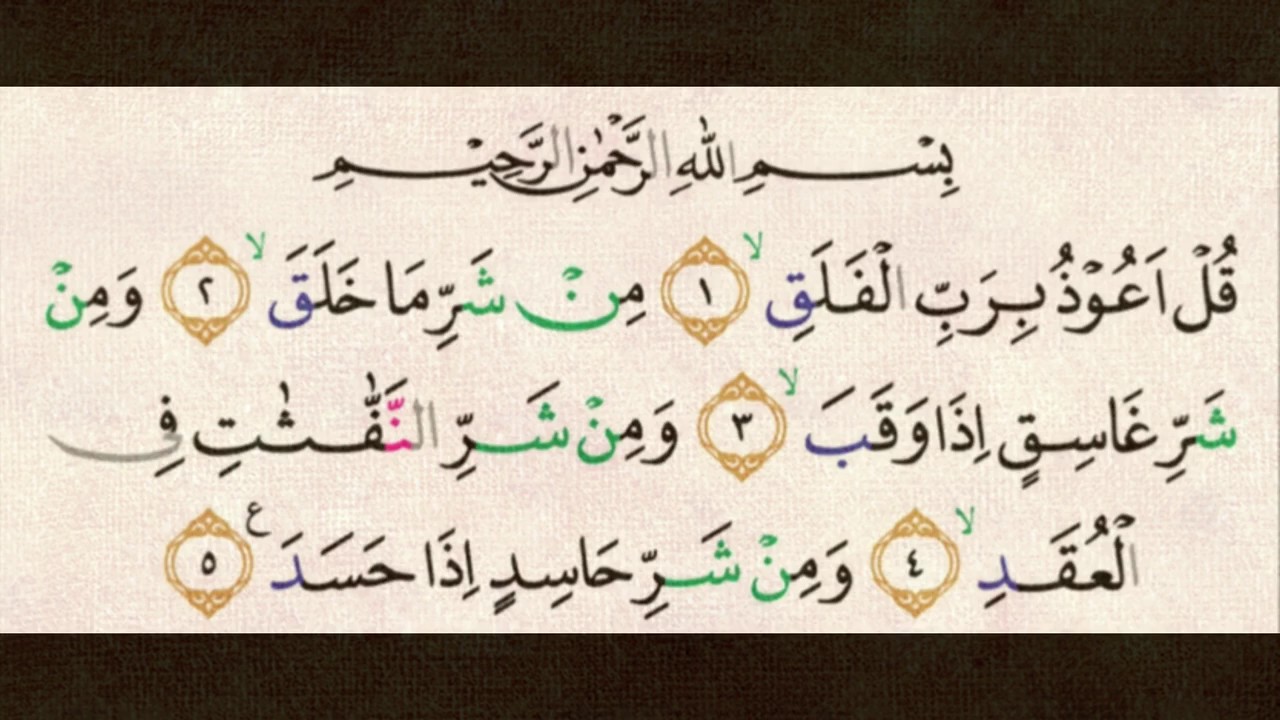 بِسْمِ اللهِ الرَّحْمٰنِ الرَّحِيْمِ
قُلْ اَعُوْذُ بِرَبِّ الْفَلَقِۙ ١ مِنْ شَرِّ مَا خَلَقَۙ ٢ وَمِنْ
شَرِّ غَاسِقٍ اِذَا وَقَبَۙ ٣ وَمِنْ شَرِّ النَّفّٰثٰتِ فِى
الْعُقَدِۙ ٤ وَمِنْ شَرِّ حَاسِدٍ اِذَا حَسَدَ ع ٥